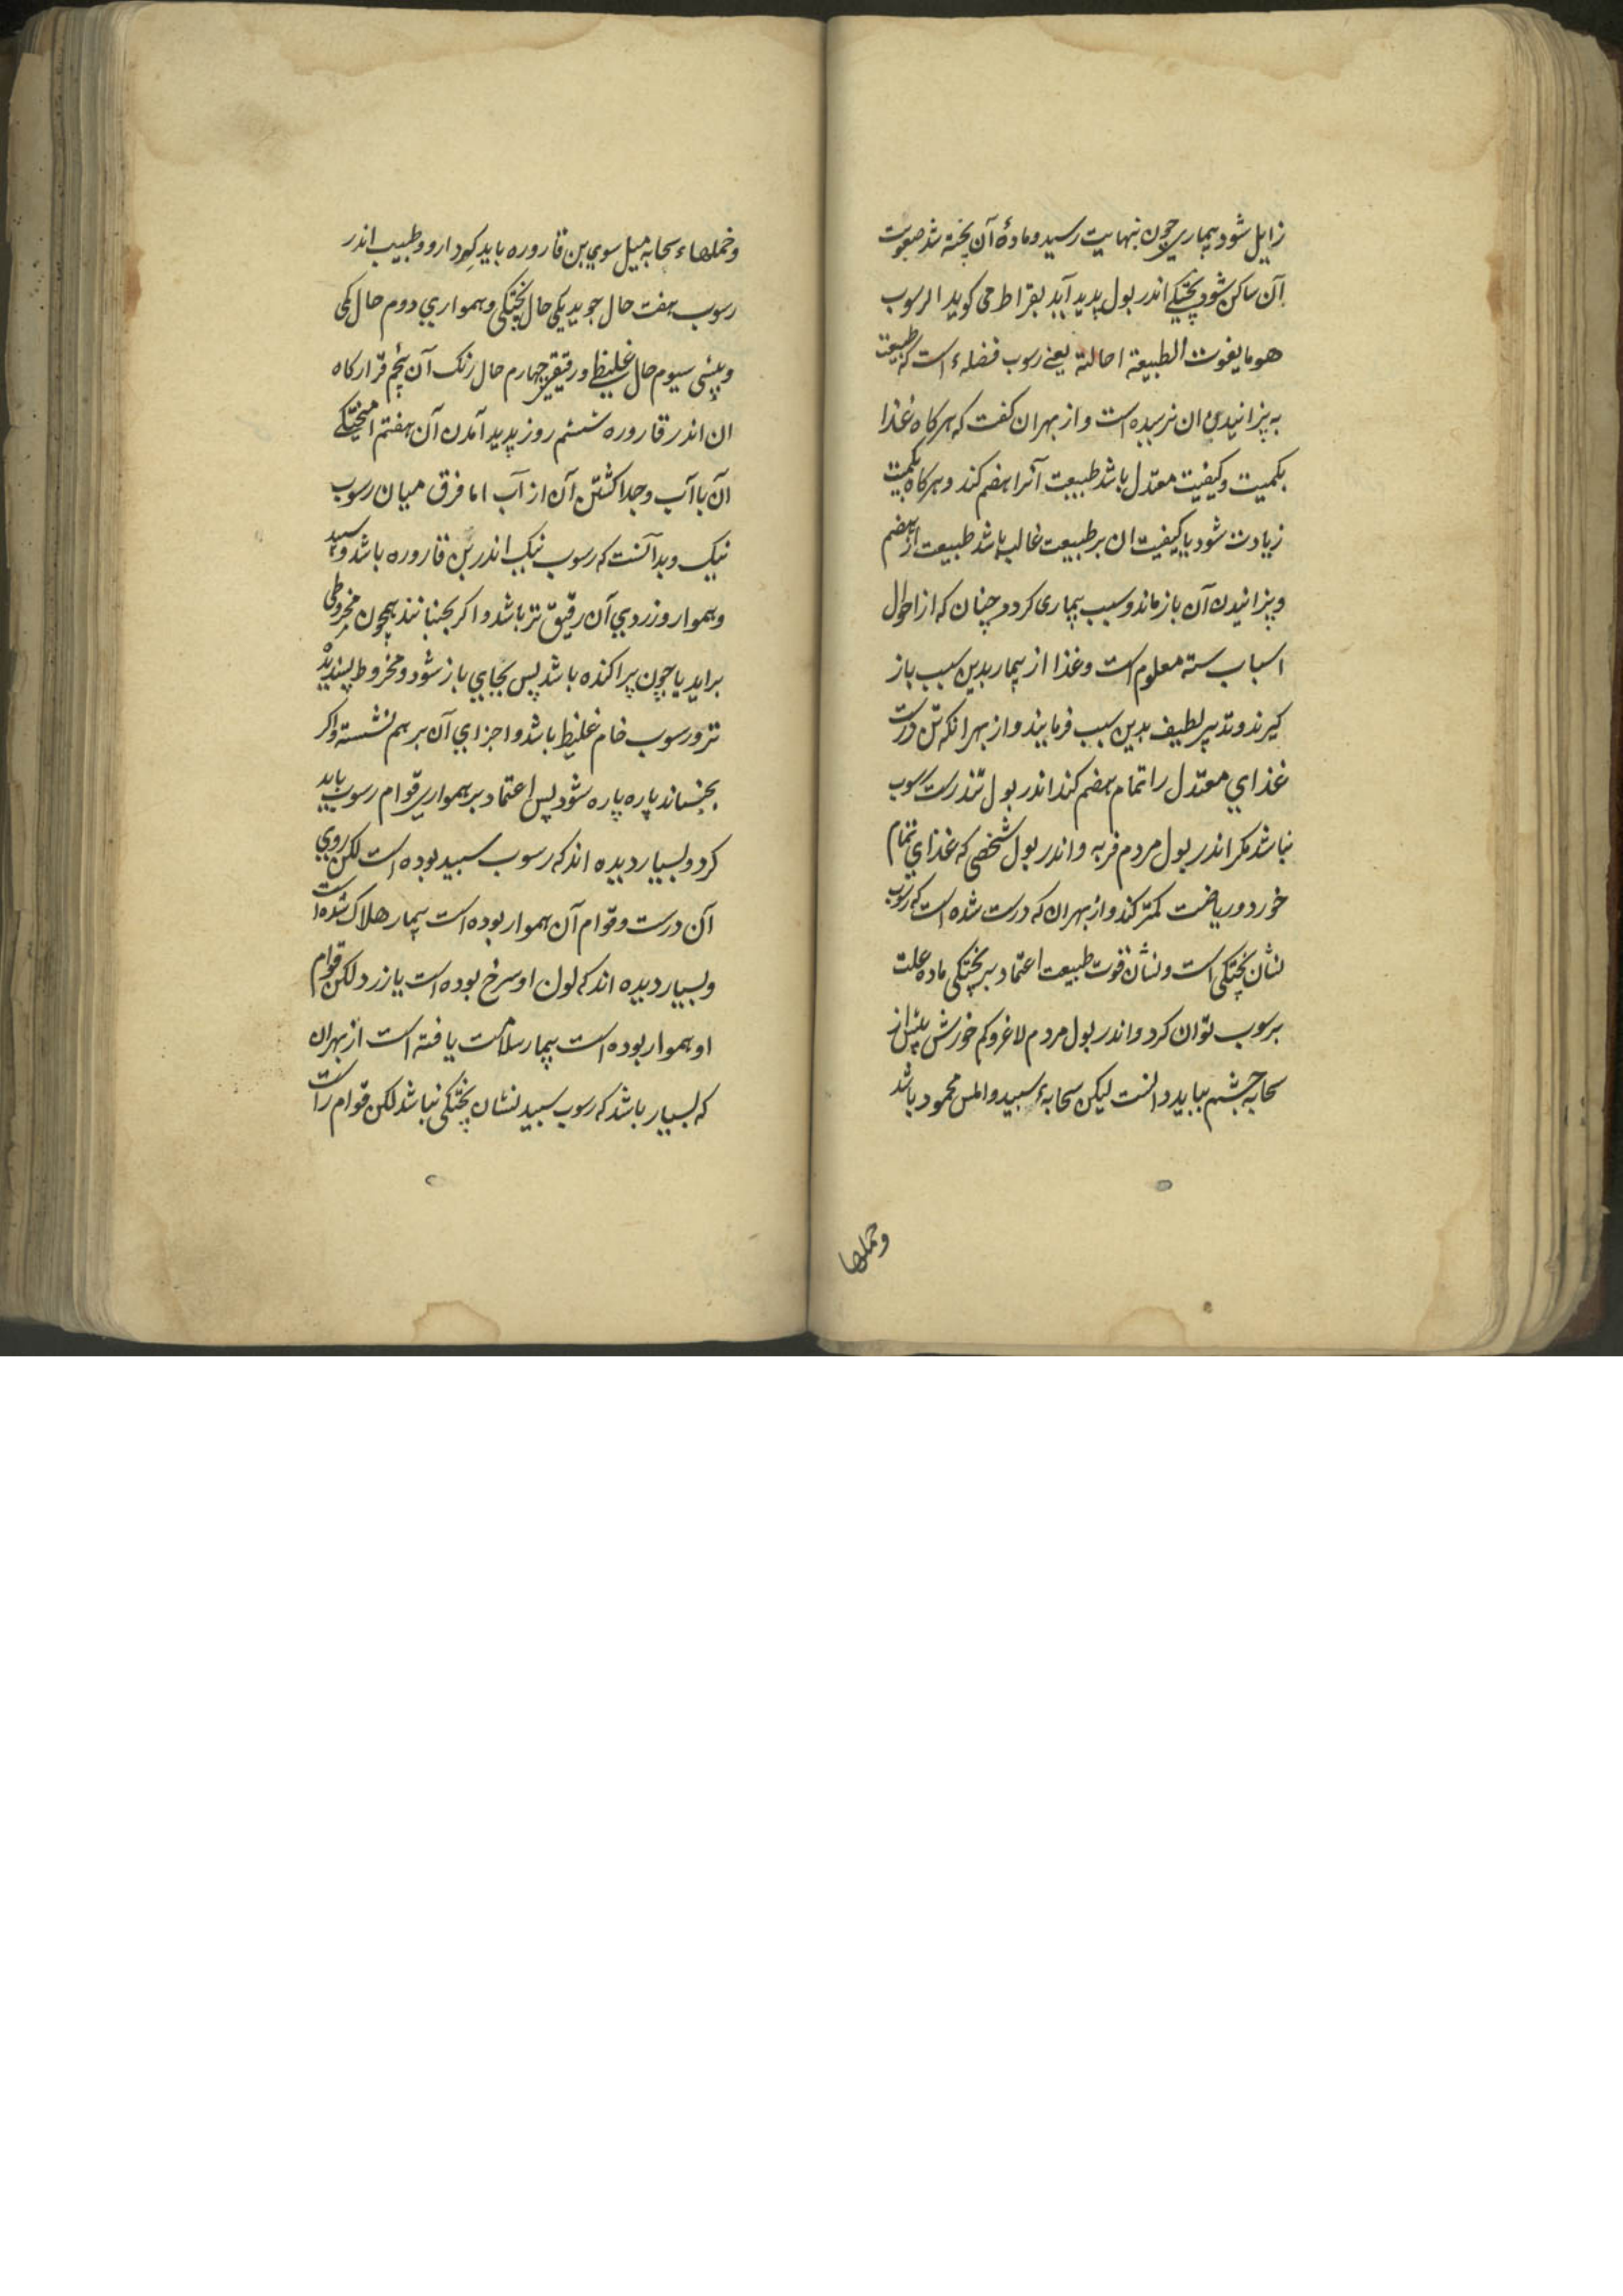 زایل شود بیماری چون بنهایت رسید و مادهٔ آن پخته شد صعوبت
آن ساکن شود پختگی اندر بول پدید آید بقراط می کوید الرسوب
هو ما یفوت الطبیعة احالته یعنے رسوب فضلهٔ است که طبیعت
به پزانیدن ان نرسیده است و از بهر ان کفت که هرکاه غذا
بکمیت و کیفیت معتدل باشد طبیعت آنرا هضم کند و هرکاه بکمیت
زیادت شود یا کیفیت ان بر طبیعت غالب باشد طبیعت از هضم
و پزانیدن آن باز ماند و سبب بیماری کردد چنان که از احوال
اسباب سته معلوم است و غذا از بیمار بدین سبب باز
کیرند و تدبیر لطیف بدین سبب فرمایند و از بهر انکه تن درست
غذاي معتدل را تمام هضم کند اندر بول تندرست رسوب
نباشد مکر اندر بول مردم فربه و اندر بول شخصی که غذاي تمام
خورد و ریاضت کمتر کند و از بهر ان که درست شده است که رسوب
نشان پختکی است و نشان قوت طبیعت اعتماد بر پختکی ماده علت
برسوب توان کرد و اندر بول مردم لاغر و کم خورش بیش از
سحابه چشم نباید داشت لیکن سحابهٔ سپید و املس محمود باشد
وخملها
وخملهاء سحابه میل سوي بن قاروره باید که دارد و طبیب اندر
رسوب هفت حال جوید یکی حال پختکی و همواري دوم حال کمی
و بیشی سیوم حال غلیظی و رقیقی چهارم حال رنک آن پنجم قرارکاه
ان اندر قاروره ششم روز پدید آمدن آن هفتم امیختکے
آن با آب و جدا کشتن آن از آب اما فرق میان رسوب
نیک و بد آنست که رسوب نیک اندر بن قاروره باشد و سپید
و هموار و زردوي آن رقیق تر باشد و اکر بجنبانند همچون مخروطی
براید یا چون پراکنده باشد پس بجاي باز شود و مخروط پسندیده
تر و رسوب خام غلیظ باشد و اجزاي آن بر هم نشسته و اکر
بجنباند پاره پاره شود پس اعتماد بر همواري قوام رسوب باید
کرد و بسیار دیده اند که رسوب سپید بوده است لکن روي
آن درست و قوام آن هموار بوده است بیمار هلاک شده است
و بسیار دیده اند که لون او سرخ بوده است یا زرد لکن قوام
او هموار بوده است بیمار سلامت یافته است از بهر ان
که بسیار باشد که رسوب سپید نشان پختکی نباشد لکن قوام راست